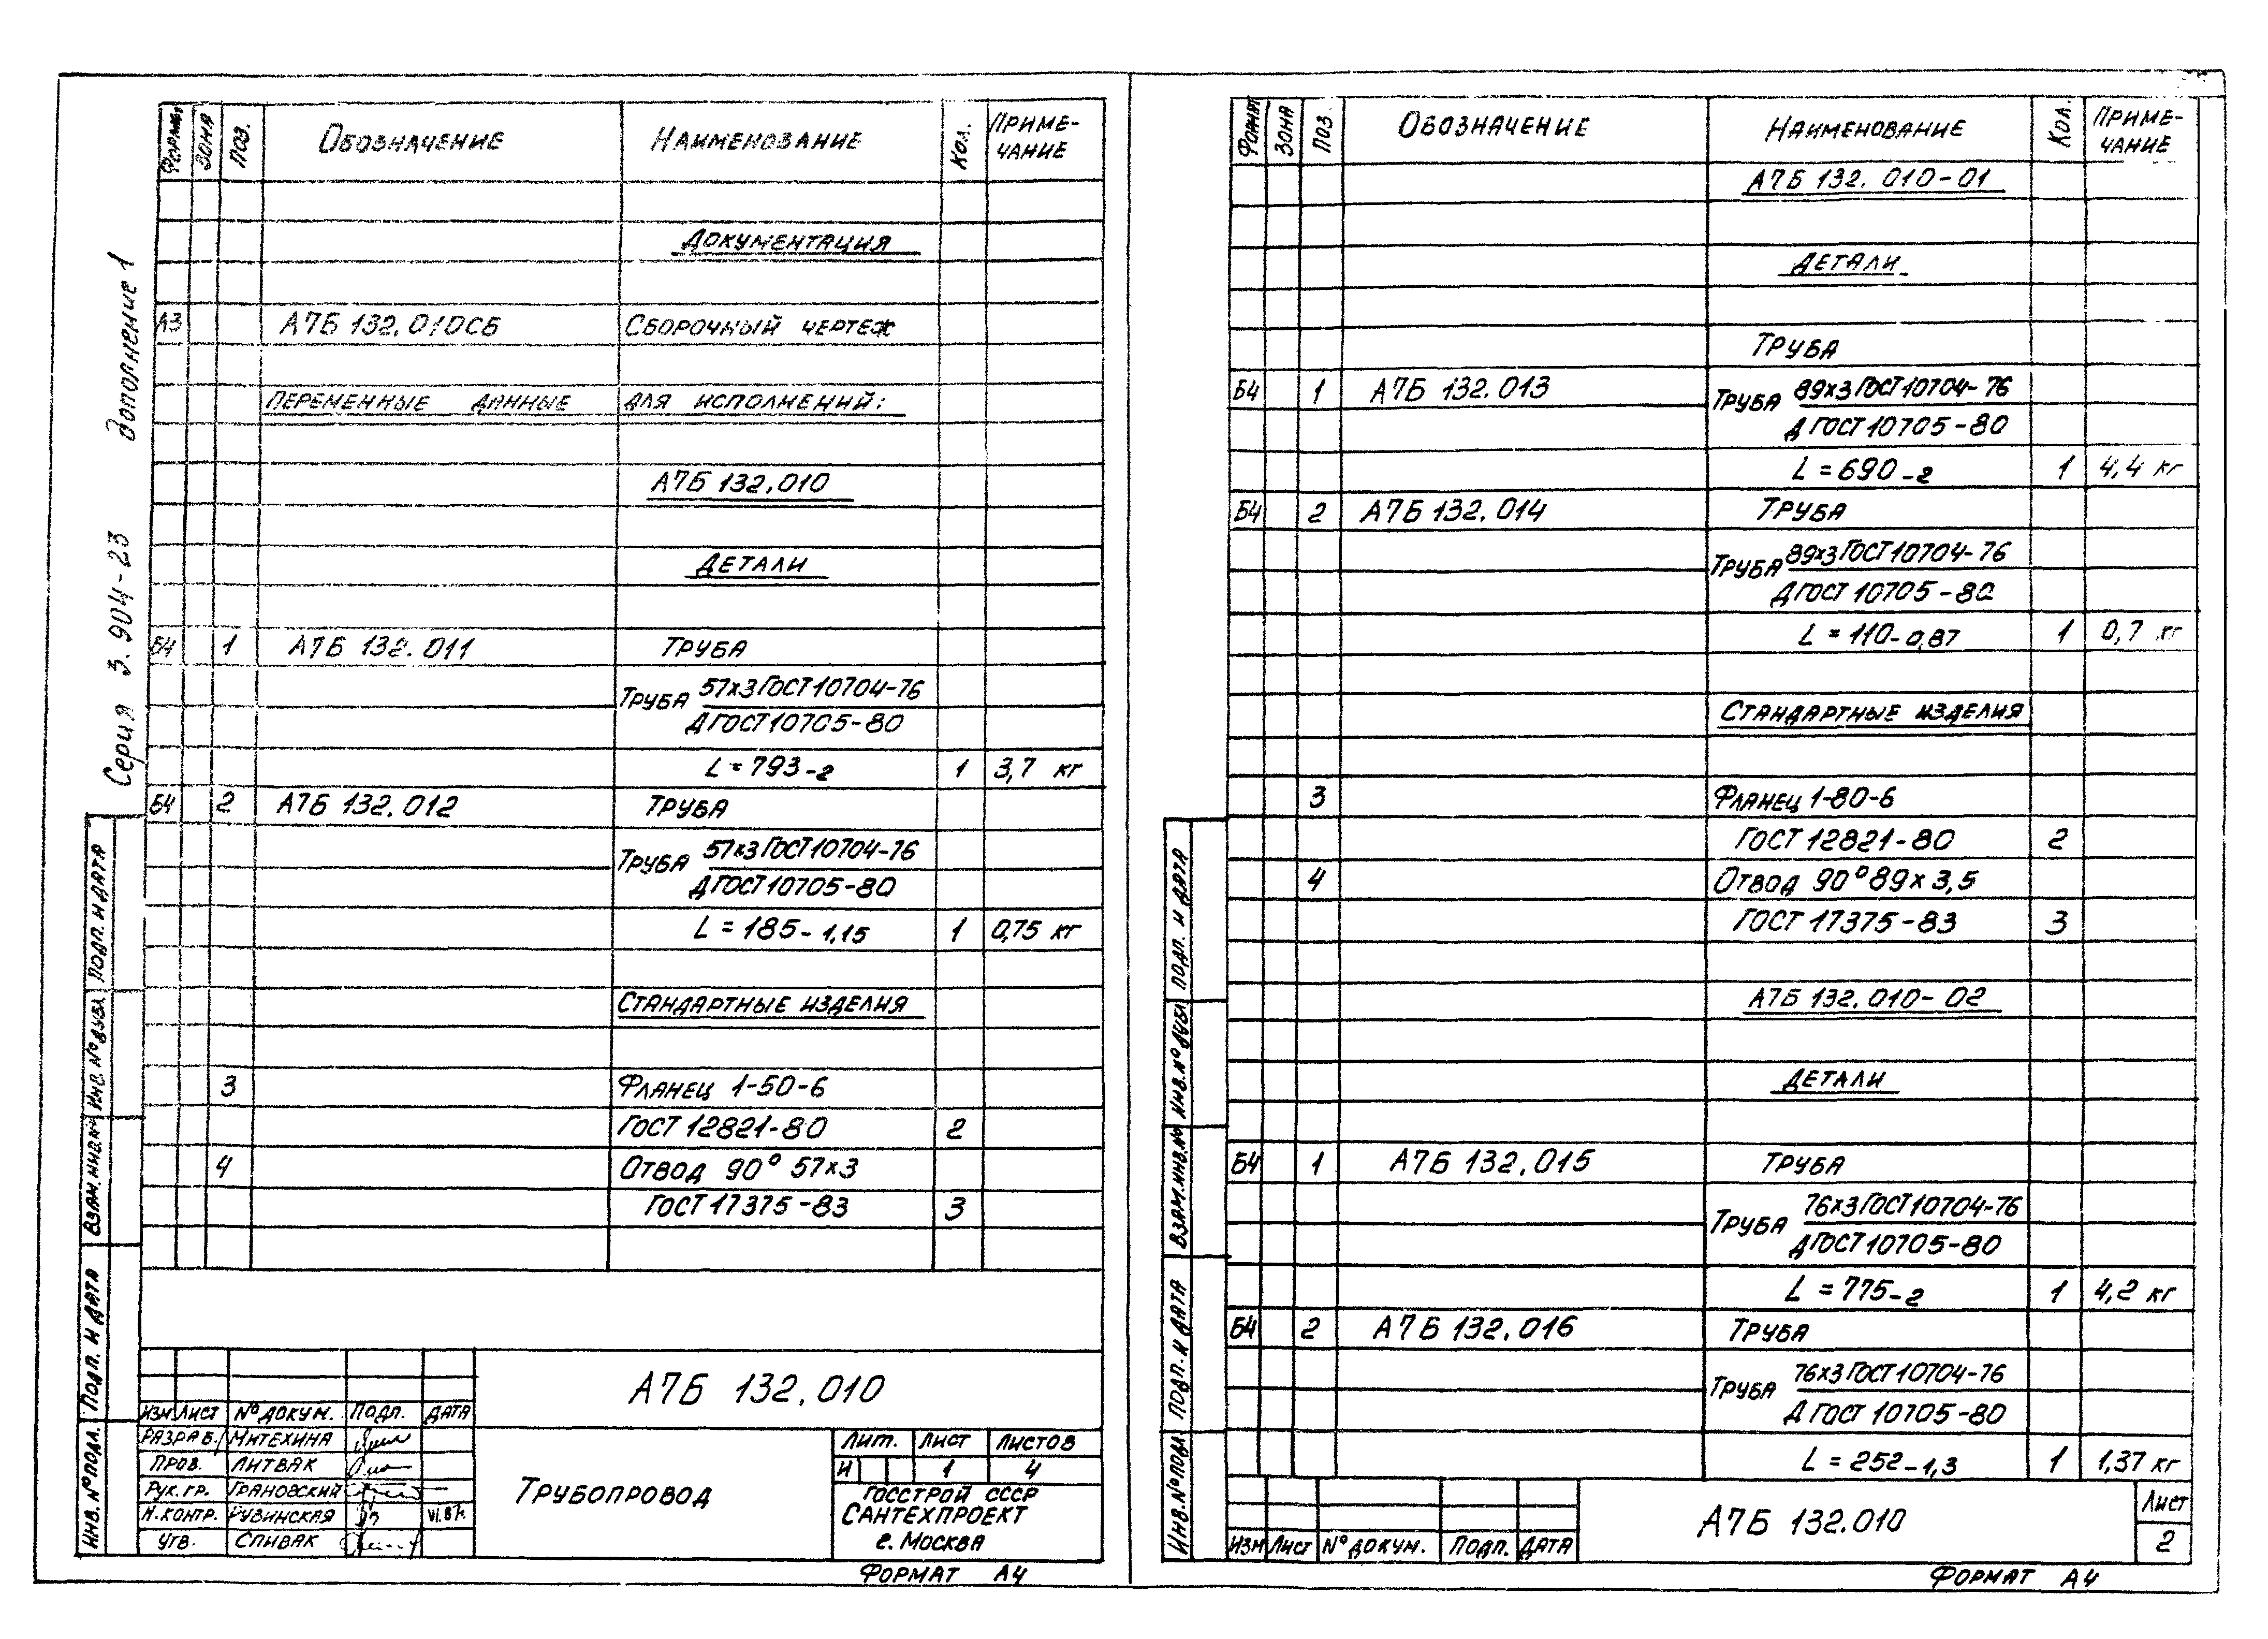 Серия 3.904-23 дополнение 1
Формат Зона Поз. Обозначение Наименование Кол. Приме-
чание
Документация
А3 А7Б 132.010СБ Сборочный чертеж
Переменные данные для исполнений:
А7Б 132.010
Детали
Б4 1 А7Б 132.011 Труба
Труба 57х3 ГОСТ 10704-76
Д ГОСТ 10705-80
L = 793-2 1 3,7 кг
Б4 2 А7Б 132.012 Труба
Труба 57х3 ГОСТ 10704-76
Д ГОСТ 10705-80
L = 185-1,15 1 0,75 кг
Стандартные изделия
3 Фланец 1-50-6
ГОСТ 12821-80 2
4 Отвод 90° 57х3
ГОСТ 17375-83 3
Инв. № подл. Подп. и дата Взам. инв. № Инв. № дубл. Подп. и дата
А7Б 132.010
Изм Лист № докум. Подп. Дата
Разраб. Митехина
Пров. Литвак
Рук. гр. Грановский
Н. контр. Рувинская VI.87г.
Утв. Спивак
Трубопровод
Лит. Лист Листов
И 1 4
Госстрой СССР
Сантехпроект
г. Москва
Формат А4
Формат Зона Поз. Обозначение Наименование Кол. Приме-
чание
А7Б 132.010-01
Детали
Труба
Б4 1 А7Б 132.013 Труба 89х3 ГОСТ 10704-76
Д ГОСТ 10705-80
L = 690-2 1 4,4 кг
Б4 2 А7Б 132.014 Труба
Труба 89х3 ГОСТ 10704-76
Д ГОСТ 10705-80
L = 110-0,87 1 0,7 кг
Стандартные изделия
3 Фланец 1-80-6
ГОСТ 12821-80 2
4 Отвод 90° 89х3,5
ГОСТ 17375-83 3
А7Б 132.010-02
Детали
Б4 1 А7Б 132.015 Труба
Труба 76х3 ГОСТ 10704-76
Д ГОСТ 10705-80
L = 775-2 1 4,2 кг
Б4 2 А7Б 132.016 Труба
Труба 76х3 ГОСТ 10704-76
Д ГОСТ 10705-80
L = 252-1,3 1 1,37 кг
Инв. № подл. Подп. и дата Взам. инв. № Инв. № дубл. Подп. и дата
Изм Лист № докум. Подп. Дата
А7Б 132.010
Лист
2
Формат А4